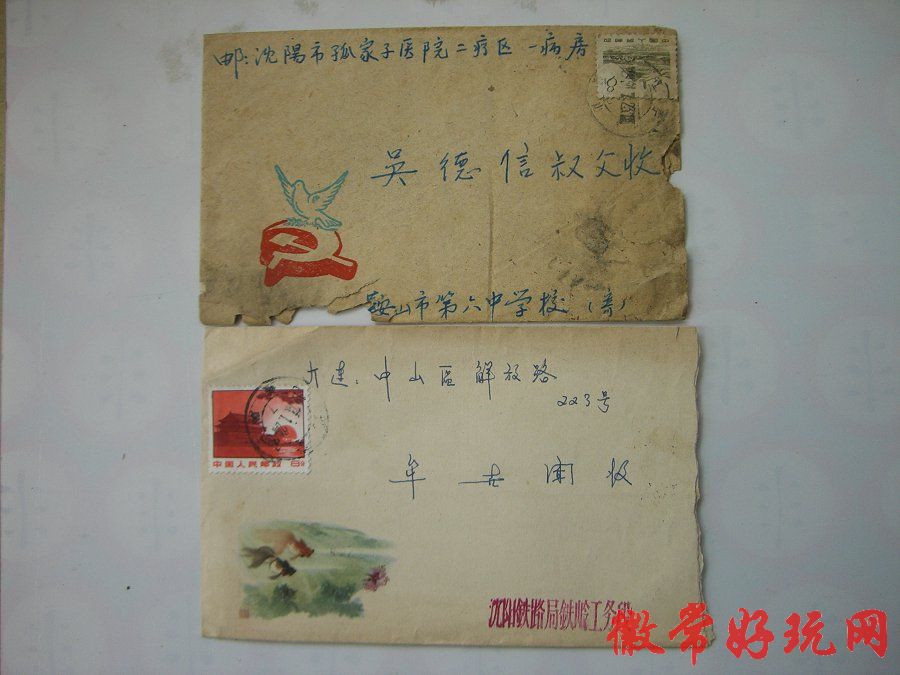 邮:沈阳市孤家子医院二疗区一病房
中国人民邮政
8
吴德信叔父收
鞍山市第六中学校(寄)
大连:中山区解放路
223号
中国人民邮政 8分
牟 收
沈阳铁路局铁岭工务段
徽常好玩网